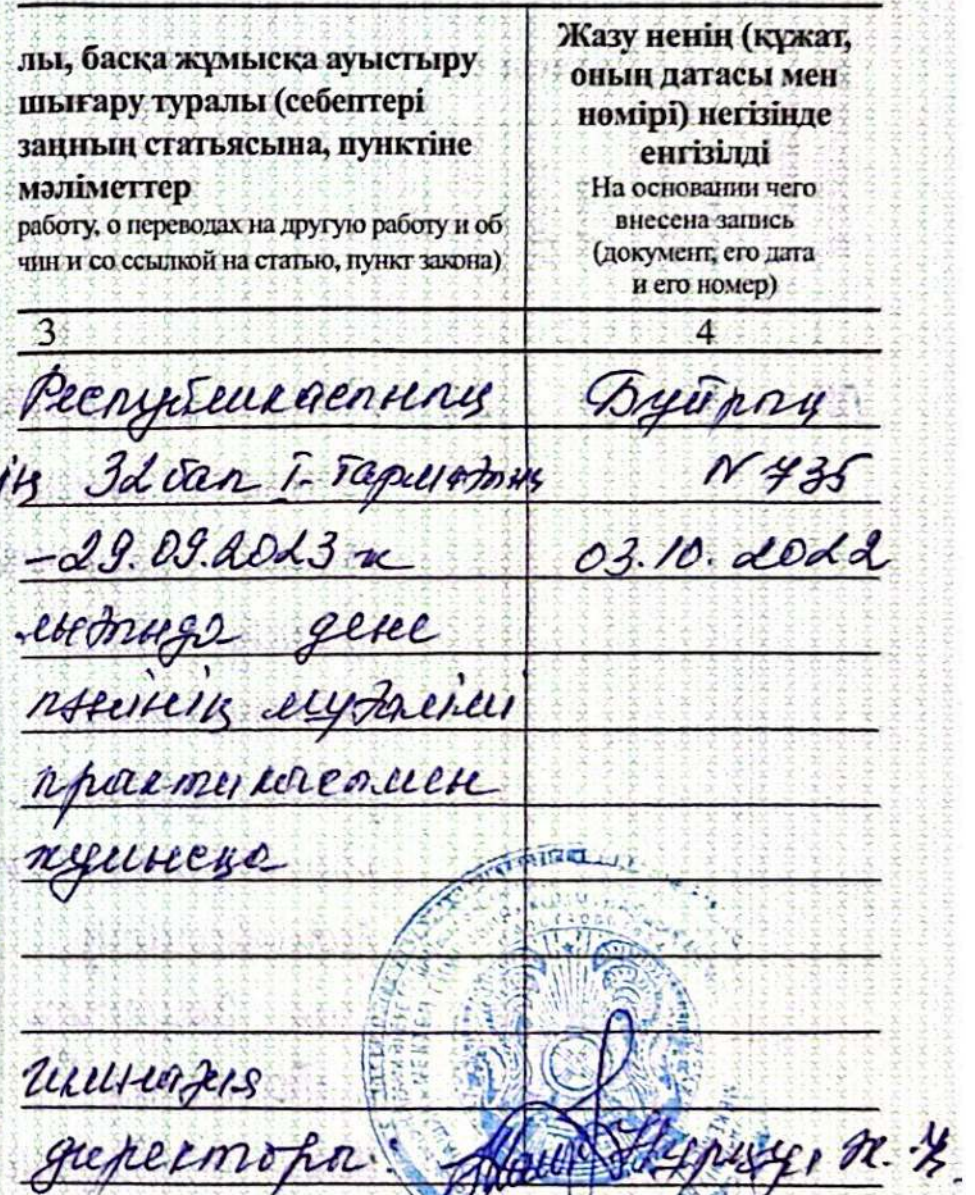 лы, басқа жұмысқа ауыстыру
шығару туралы (себептері
заңның статьясына, пунктіне
мәліметтер
работу, о переводах на другую работу и об
чин и со ссылкой на статью, пункт закона)
Жазу ненің (құжат,
оның датасы мен
нөмірі) негізінде
енгізілді
На основании чего
внесена запись
(документ, его дата
и его номер)
3
4
Республикасының Бұйрық
ің 32 бап 1-тармағының N 735
-29.09.2023 ж 03.10.2022
лығында дене
пәнінің мұғалімі
практикасымен
жұмысқа
гимназия
директоры: